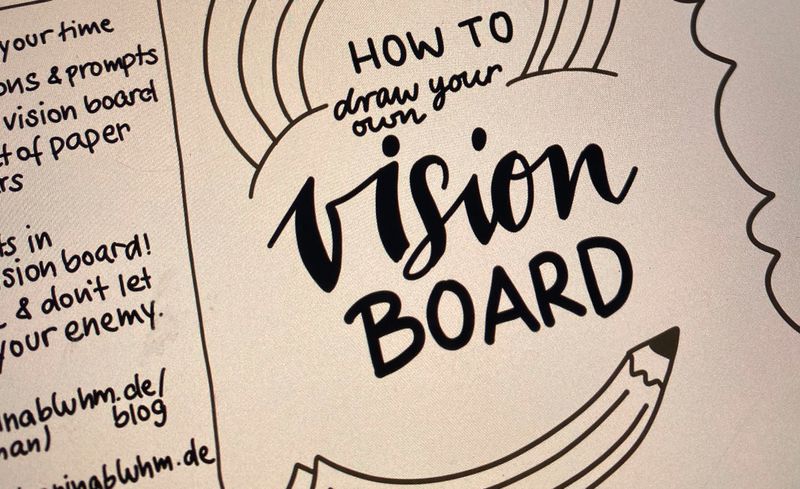 your time
ons & prompts
vision board
t of paper
rs
ts in
sion board!
& don't let
your enemy.
inabwhm.de/
blog
man)
ninabwhm.de
HOW TO
draw your
own
vision
BOARD